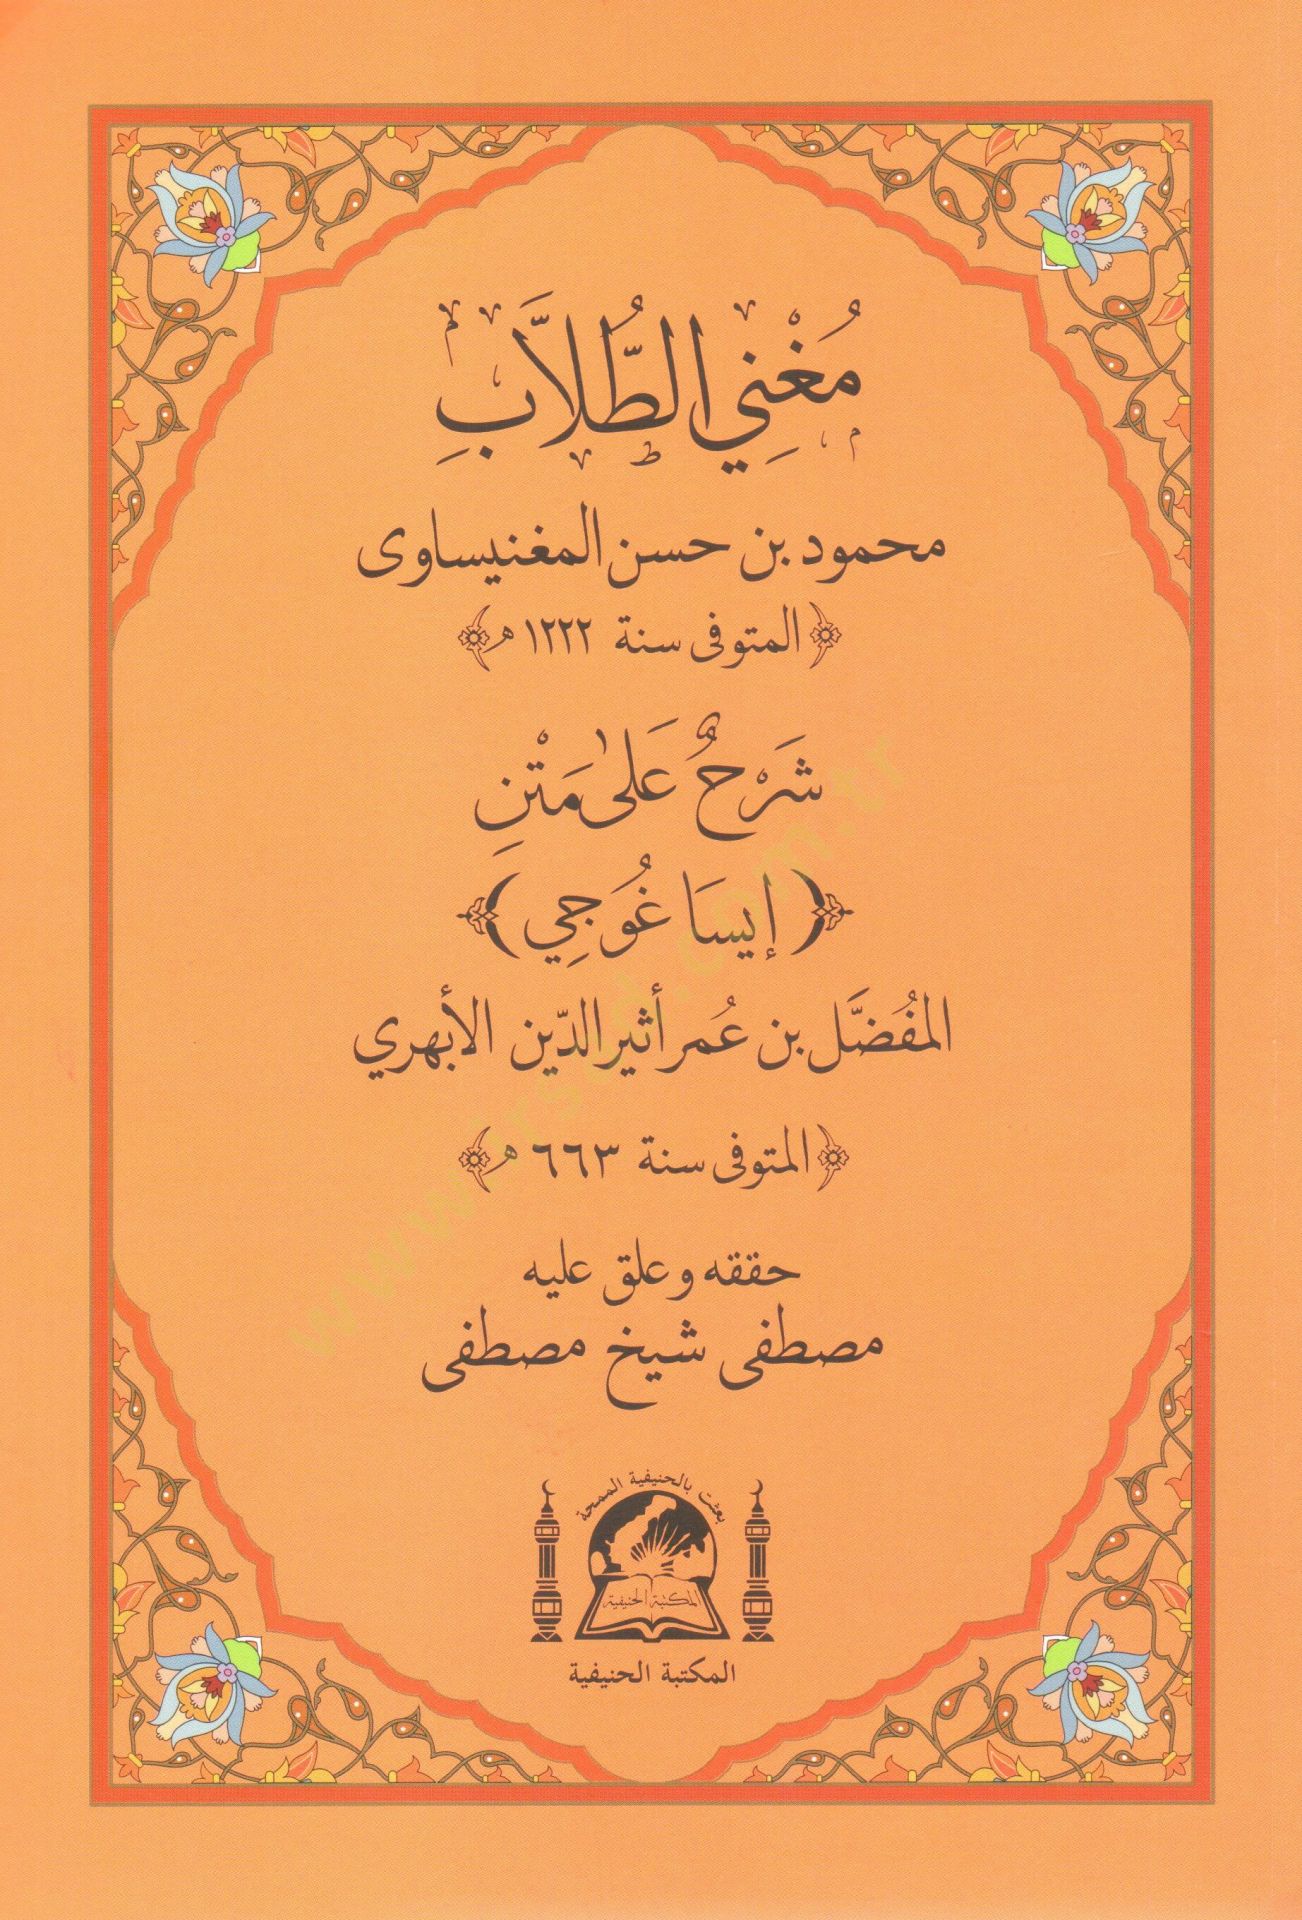 مُغْنِي الطُّلاَّبِ
محمود بن حسن المغنيساوى
﴿المتوفى سنة ١٢٢٢ ﻫ﴾
شَرْحٌ عَلىٰ مَتْنِ
﴿إيسَا غُوجِي﴾
المُفضَّل بن عُمر أثير الدّين الأبهري
﴿المتوفى سنة ٦٦٣ ﻫ﴾
حققه و علق عليه
مصطفى شيخ مصطفى
بعثت بالحنيفية السمحة
المكتبة الحنيفية
المكتبة الحنيفية
www.irsad.com.tr